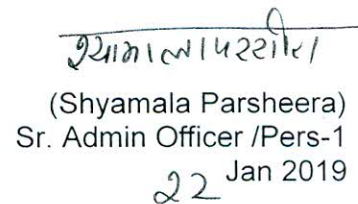 श्यामला परशीरा
(Shyamala Parsheera)
Sr. Admin Officer /Pers-1
22 Jan 2019